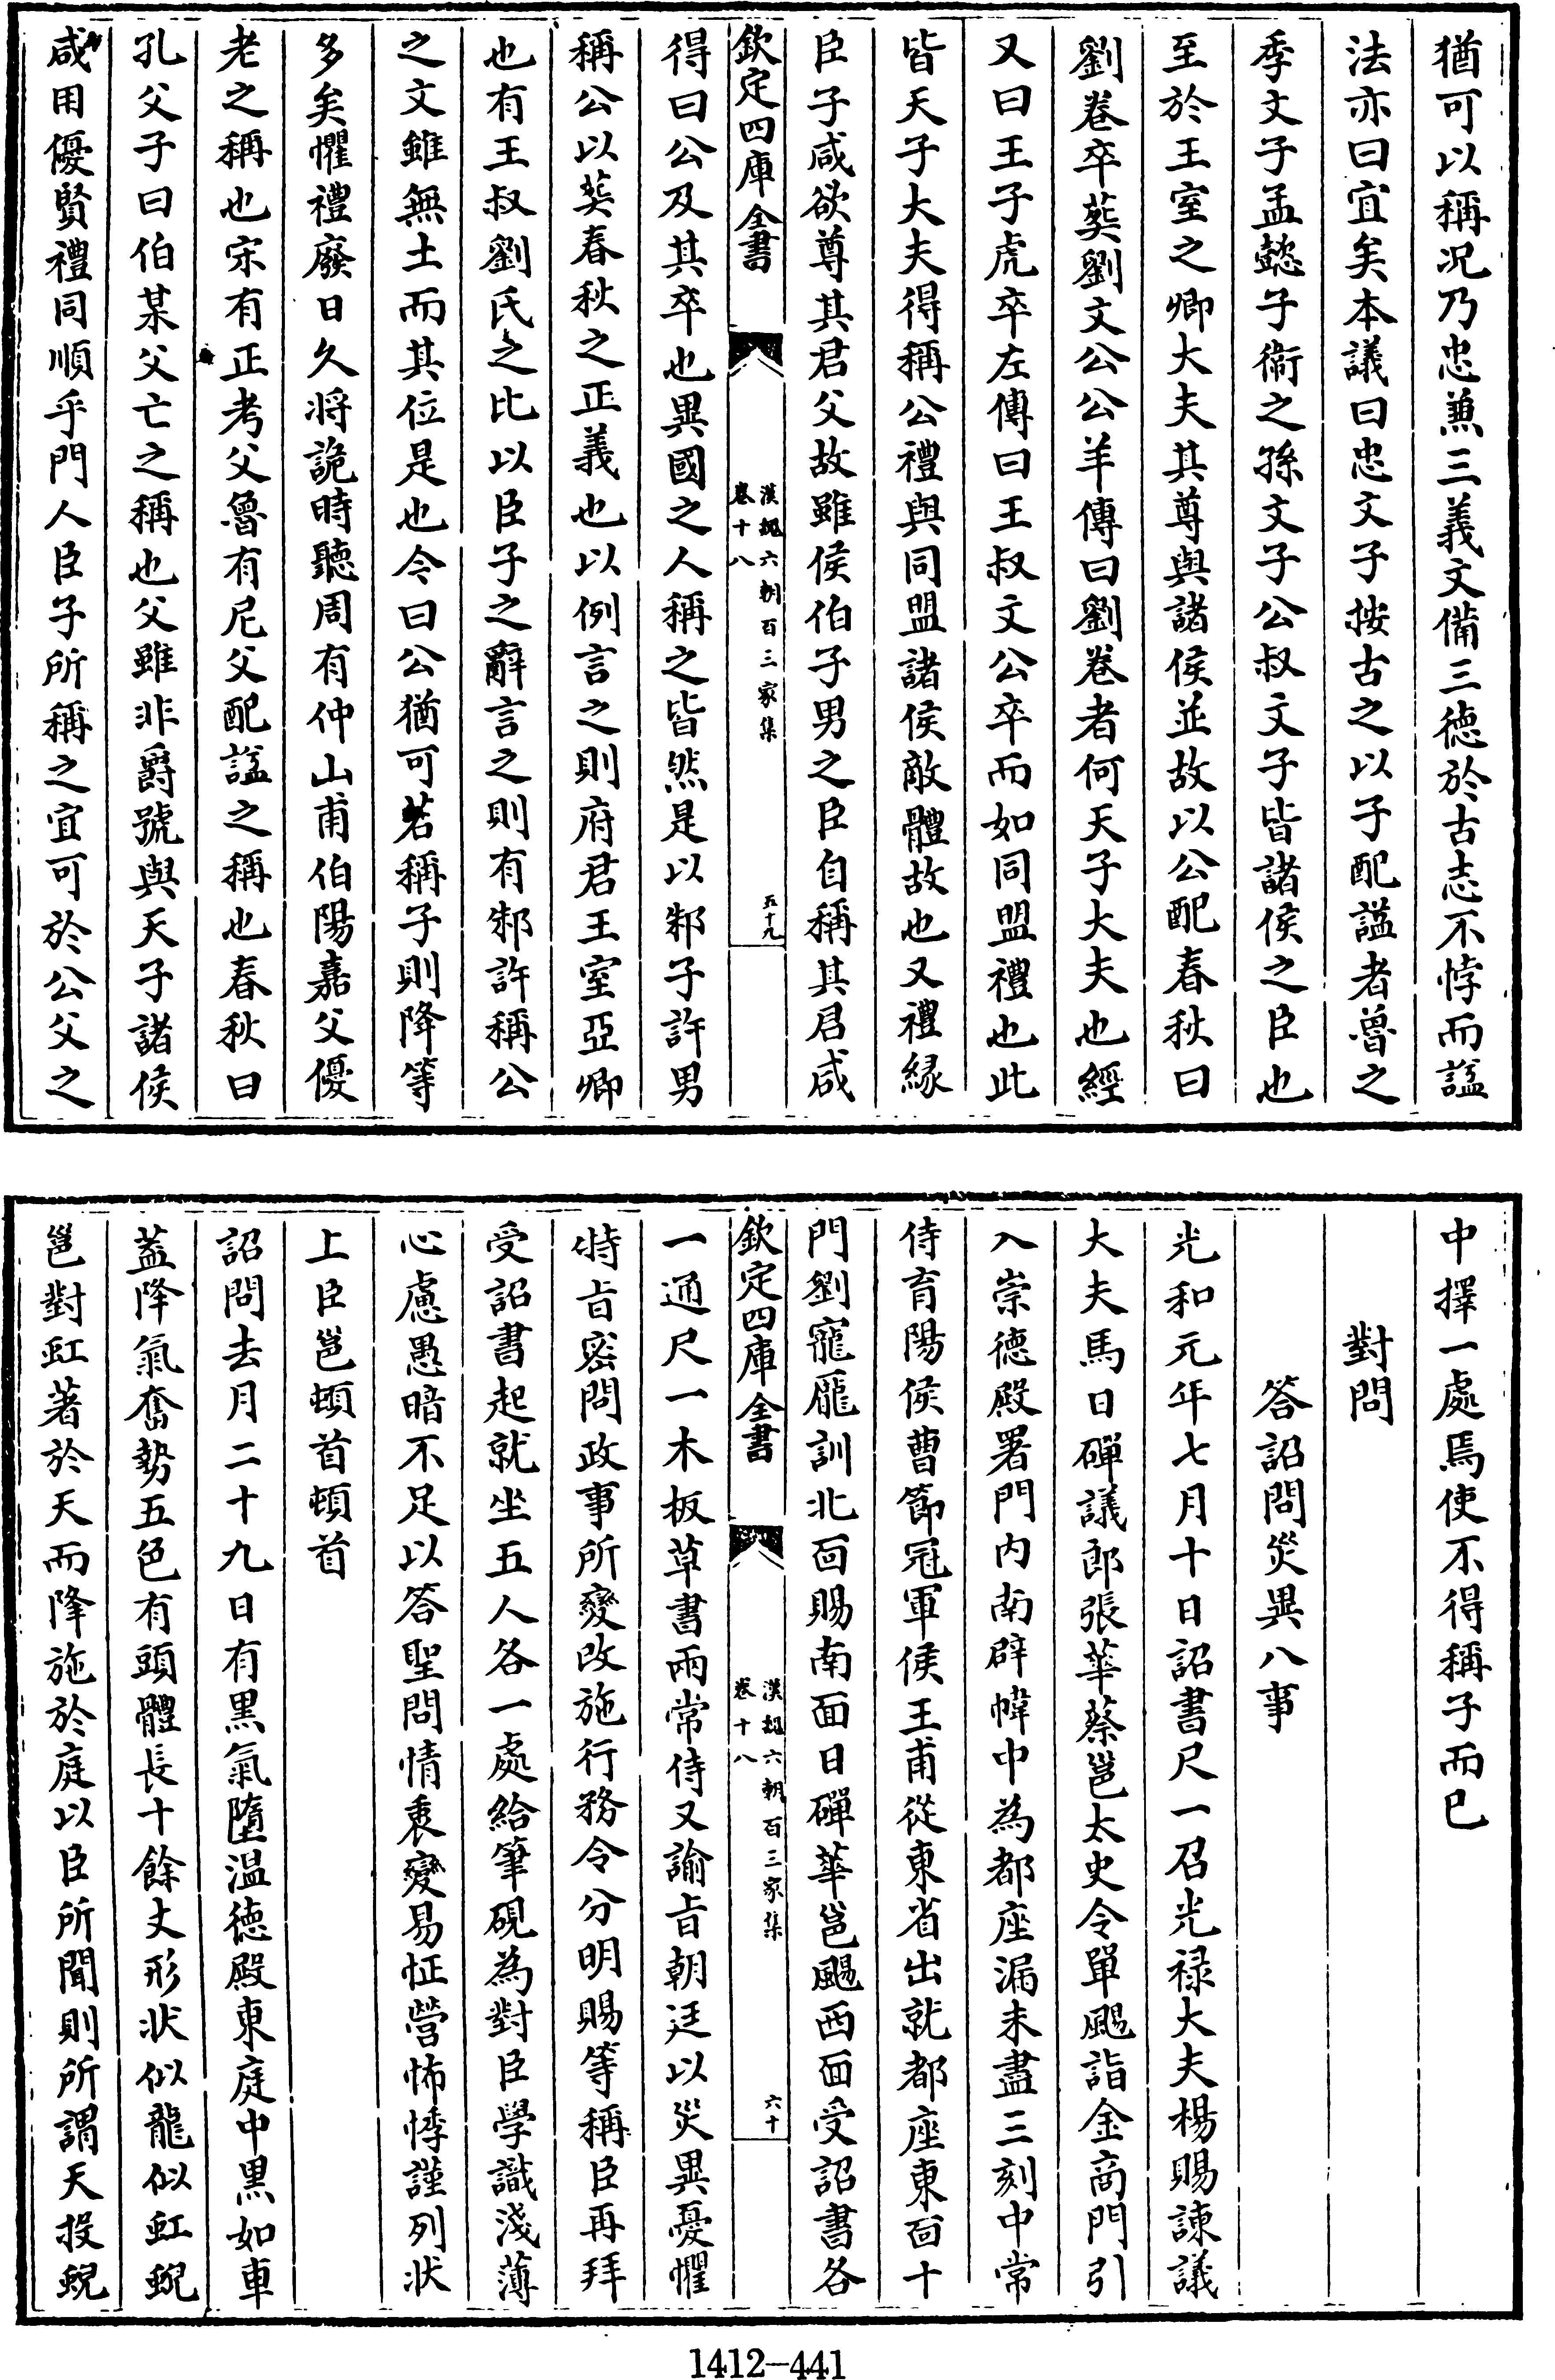 猶可以稱况乃忠兼三義文備三徳於古志不悖而諡
法亦曰宜矣本議曰忠文子按古之以子配諡者魯之
季文子孟懿子衛之孫文子公叔文子皆諸侯之臣也
至於王室之卿大夫其尊與諸侯並故以公配春秋曰
劉卷卒葬劉文公公羊傳曰劉卷者何天子大夫也經
又曰王子虎卒左傳曰王叔文公卒而如同盟禮也此
皆天子大夫得稱公禮與同盟諸侯敵體故也又禮縁
臣子咸欲尊其君父故雖侯伯子男之臣自稱其君咸
欽定四庫全書
漢魏六朝百三家集
卷十八
五十九
得曰公及其卒也異國之人稱之皆然是以邾子許男
稱公以葬春秋之正義也以例言之則府君王室亞卿
也有王叔劉氏之比以臣子之辭言之則有邾許稱公
之文雖無土而其位是也令曰公猶可若稱子則降等
多矣懼禮廢日久将詭時聽周有仲山甫伯陽嘉父優
老之稱也宋有正考父魯有尼父配諡之稱也春秋曰
孔父子曰伯某父亡之稱也父雖非爵號與天子諸侯
咸用優賢禮同順乎門人臣子所稱之宜可於公父之
中擇一處焉使不得稱子而已
對問
答詔問災異八事
光和元年七月十日詔書尺一召光禄大夫楊賜諫議
大夫馬日磾議郎張華蔡邕太史令單颺詣金商門引
入崇德殿署門内南辟幃中為都座漏未盡三刻中常
侍育陽侯曹節冠軍侯王甫從東省出就都座東靣十
門劉寵龎訓北靣賜南面日磾華邕颺西面受詔書各
欽定四庫全書
漢魏六朝百三家集
卷十八
六十
一通尺一木板草書兩常侍又諭㫖朝廷以災異憂懼
特㫖密問政事所變改施行務令分明賜等稱臣再拜
受詔書起就坐五人各一處給筆硯為對臣學識淺薄
心慮愚暗不足以答聖問情衷變易怔營怖悸謹列狀
上臣邕頓首頓首
詔問去月二十九日有黑氣墮温德殿東庭中黒如車
葢降氣奮勢五色有頭體長十餘丈形狀似龍似虹蜺
邕對虹著於天而降施於庭以臣所聞則所謂天投蜺
1412-441